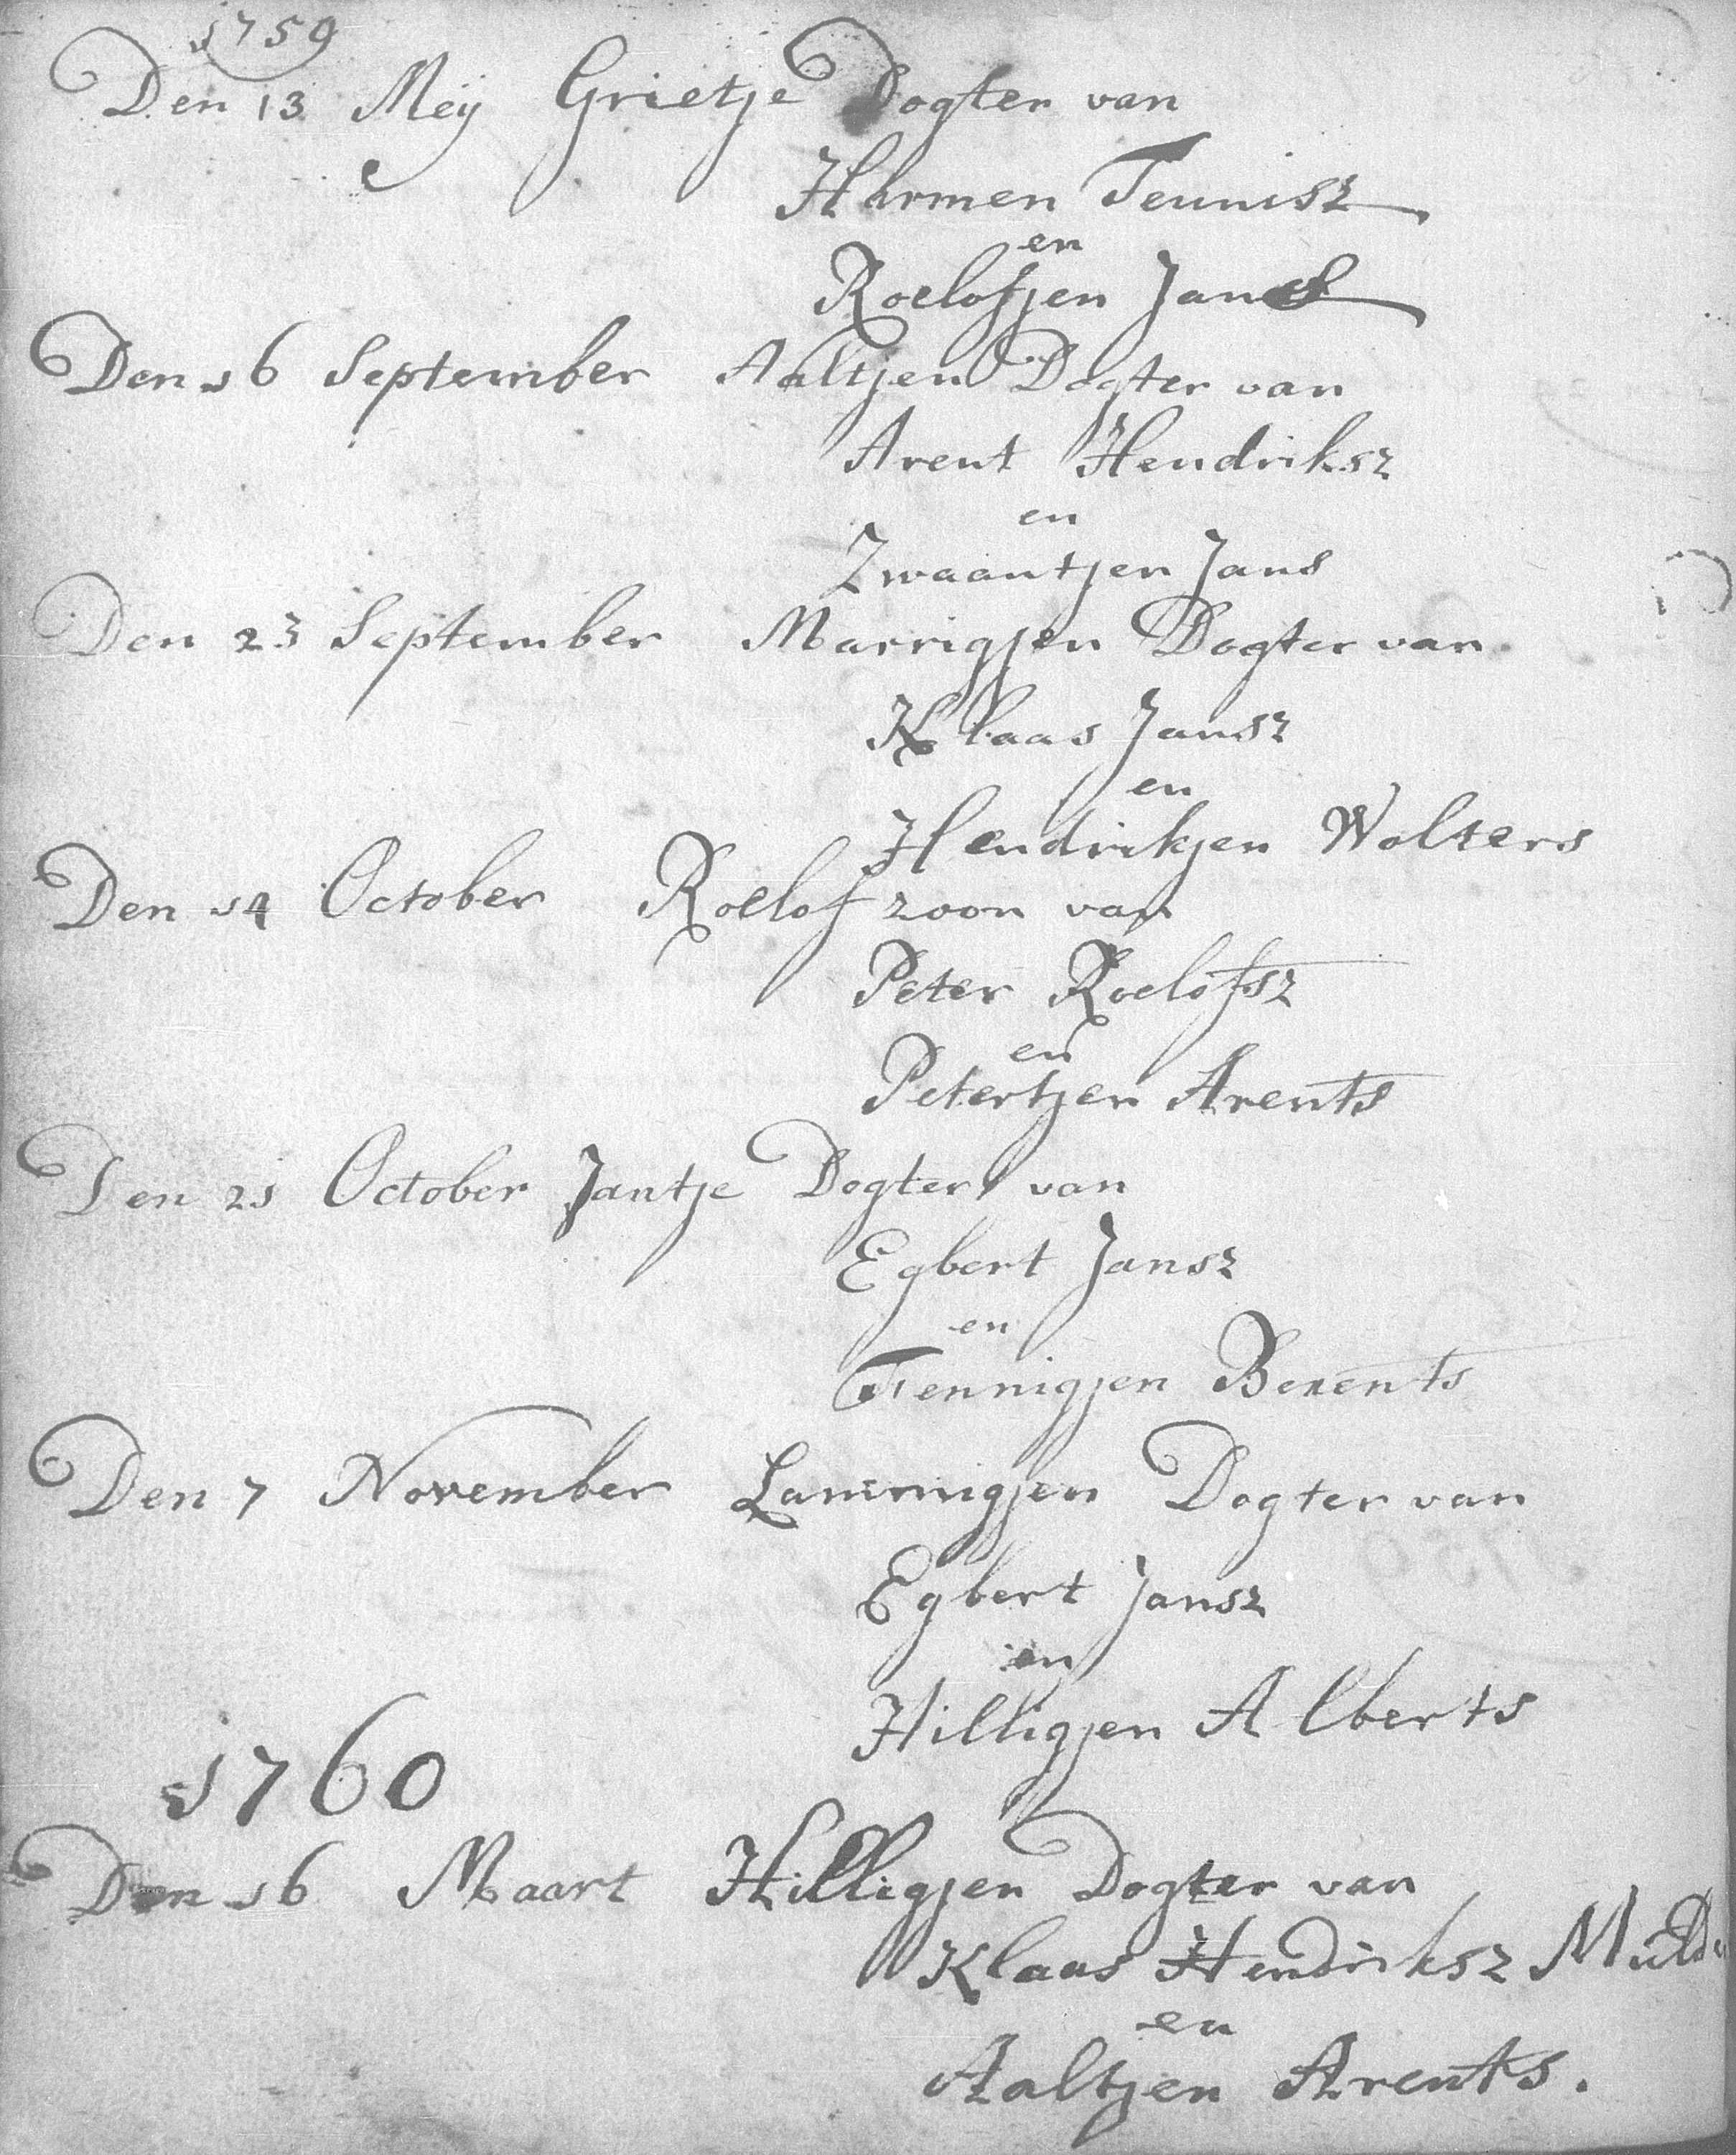 1759
Den 13 Meij Grietje Dogter van
Harmen Teunisz
en
Roelofjen Jans
Den 16 September Aaltjen Dogter van
Arent Hendriksz
en
Zwaantjen Jans
Den 23 September Marrigjen Dogter van
Klaas Jansz
en
Hendrikjen Wolters
Den 14 October Roelof zoon van
Peter Roelofsz
en
Petertjen Arents
Den 21 October Jantje Dogter van
Egbert Jansz
en
Fennigjen Berents
Den 7 November Lammigjen Dogter van
Egbert Jansz
en
Hilligjen Alberts
1760
Den 16 Maart Hilligjen Dogter van
Klaas Hendriksz
en
Aaltjen Arents.